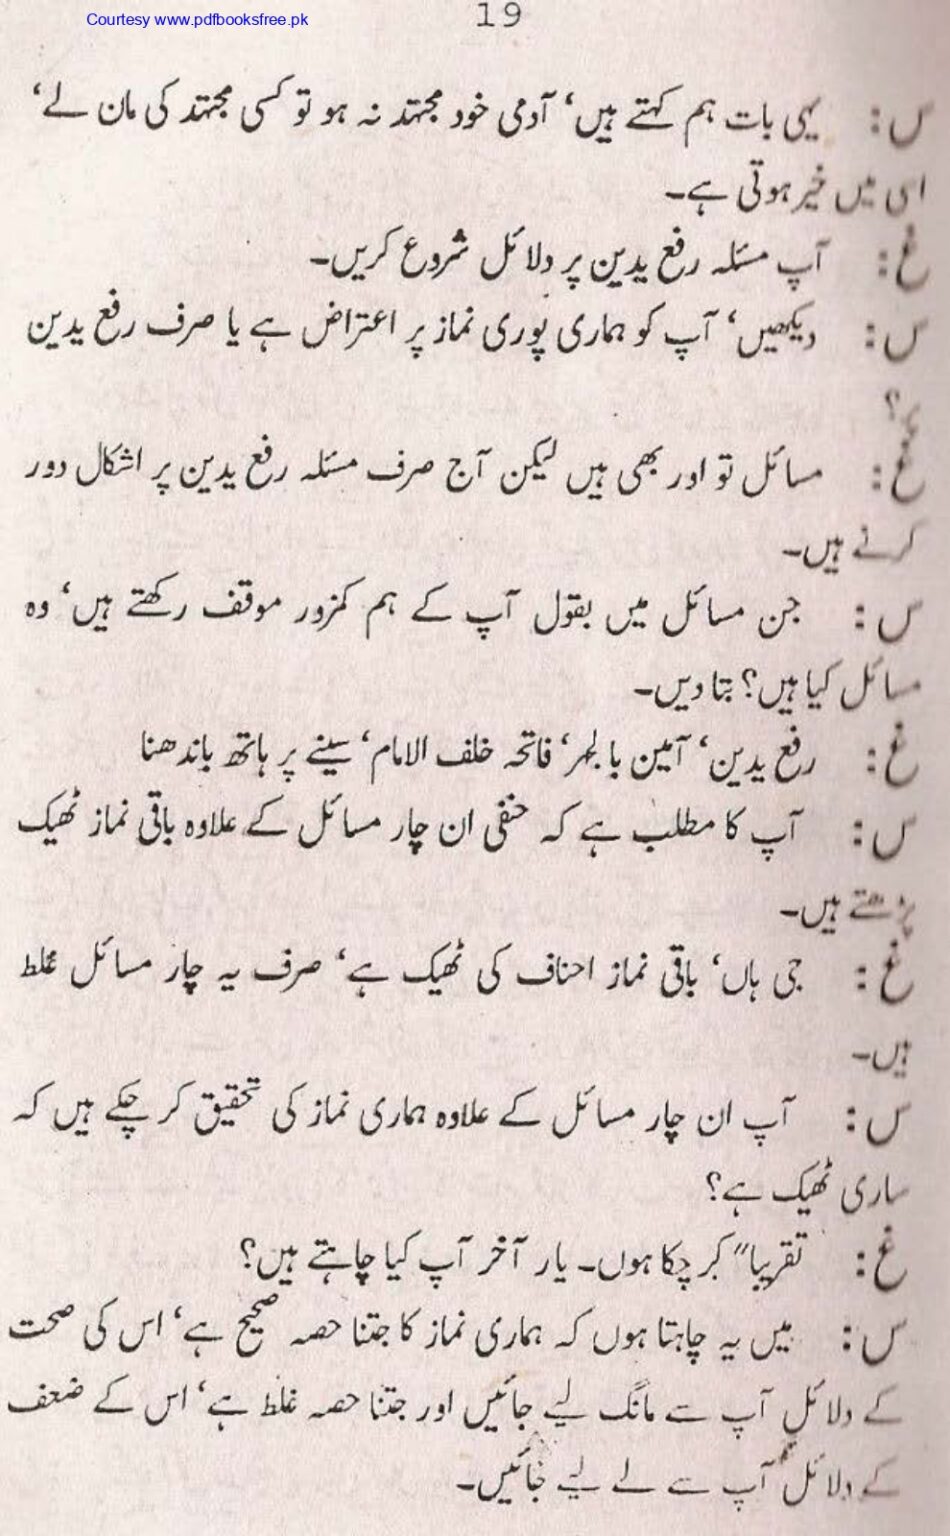 Courtesy www.pdfbooksfree.pk
19
س: یہی بات ہم کہتے ہیں‘ آدمی خود مجتہد نہ ہو تو کسی مجتہد کی مان لے‘
اسی میں خیر ہوتی ہے۔
غ: آپ مسئلہ رفع یدین پر دلائل شروع کریں۔
س: دیکھیں‘ آپ کو ہماری پوری نماز پر اعتراض ہے یا صرف رفع یدین
پر؟
غ: مسائل تو اور بھی ہیں لیکن آج صرف مسئلہ رفع یدین پر اشکال دور
کرنے ہیں۔
س: جن مسائل میں بقول آپ کے ہم کمزور موقف رکھتے ہیں‘ وہ
مسائل کیا ہیں؟ بتا دیں۔
غ: رفع یدین‘ آمین بالجہر‘ فاتحہ خلف الامام‘ سینے پر ہاتھ باندھنا
س: آپ کا مطلب ہے کہ حنفی ان چار مسائل کے علاوہ باقی نماز ٹھیک
پڑھتے ہیں۔
غ: جی ہاں‘ باقی نماز احناف کی ٹھیک ہے‘ صرف یہ چار مسائل غلط
ہیں۔
س: آپ ان چار مسائل کے علاوہ ہماری نماز کی تحقیق کر چکے ہیں کہ
ساری ٹھیک ہے؟
غ: تقریبا" کر چکا ہوں۔ یار آخر آپ کیا چاہتے ہیں؟
س: میں یہ چاہتا ہوں کہ ہماری نماز کا جتنا حصہ صحیح ہے‘ اس کی صحت
کے دلائل آپ سے مانگ لیے جائیں اور جتنا حصہ غلط ہے‘ اس کے ضعف
کے دلائل آپ سے لے لیے جائیں۔